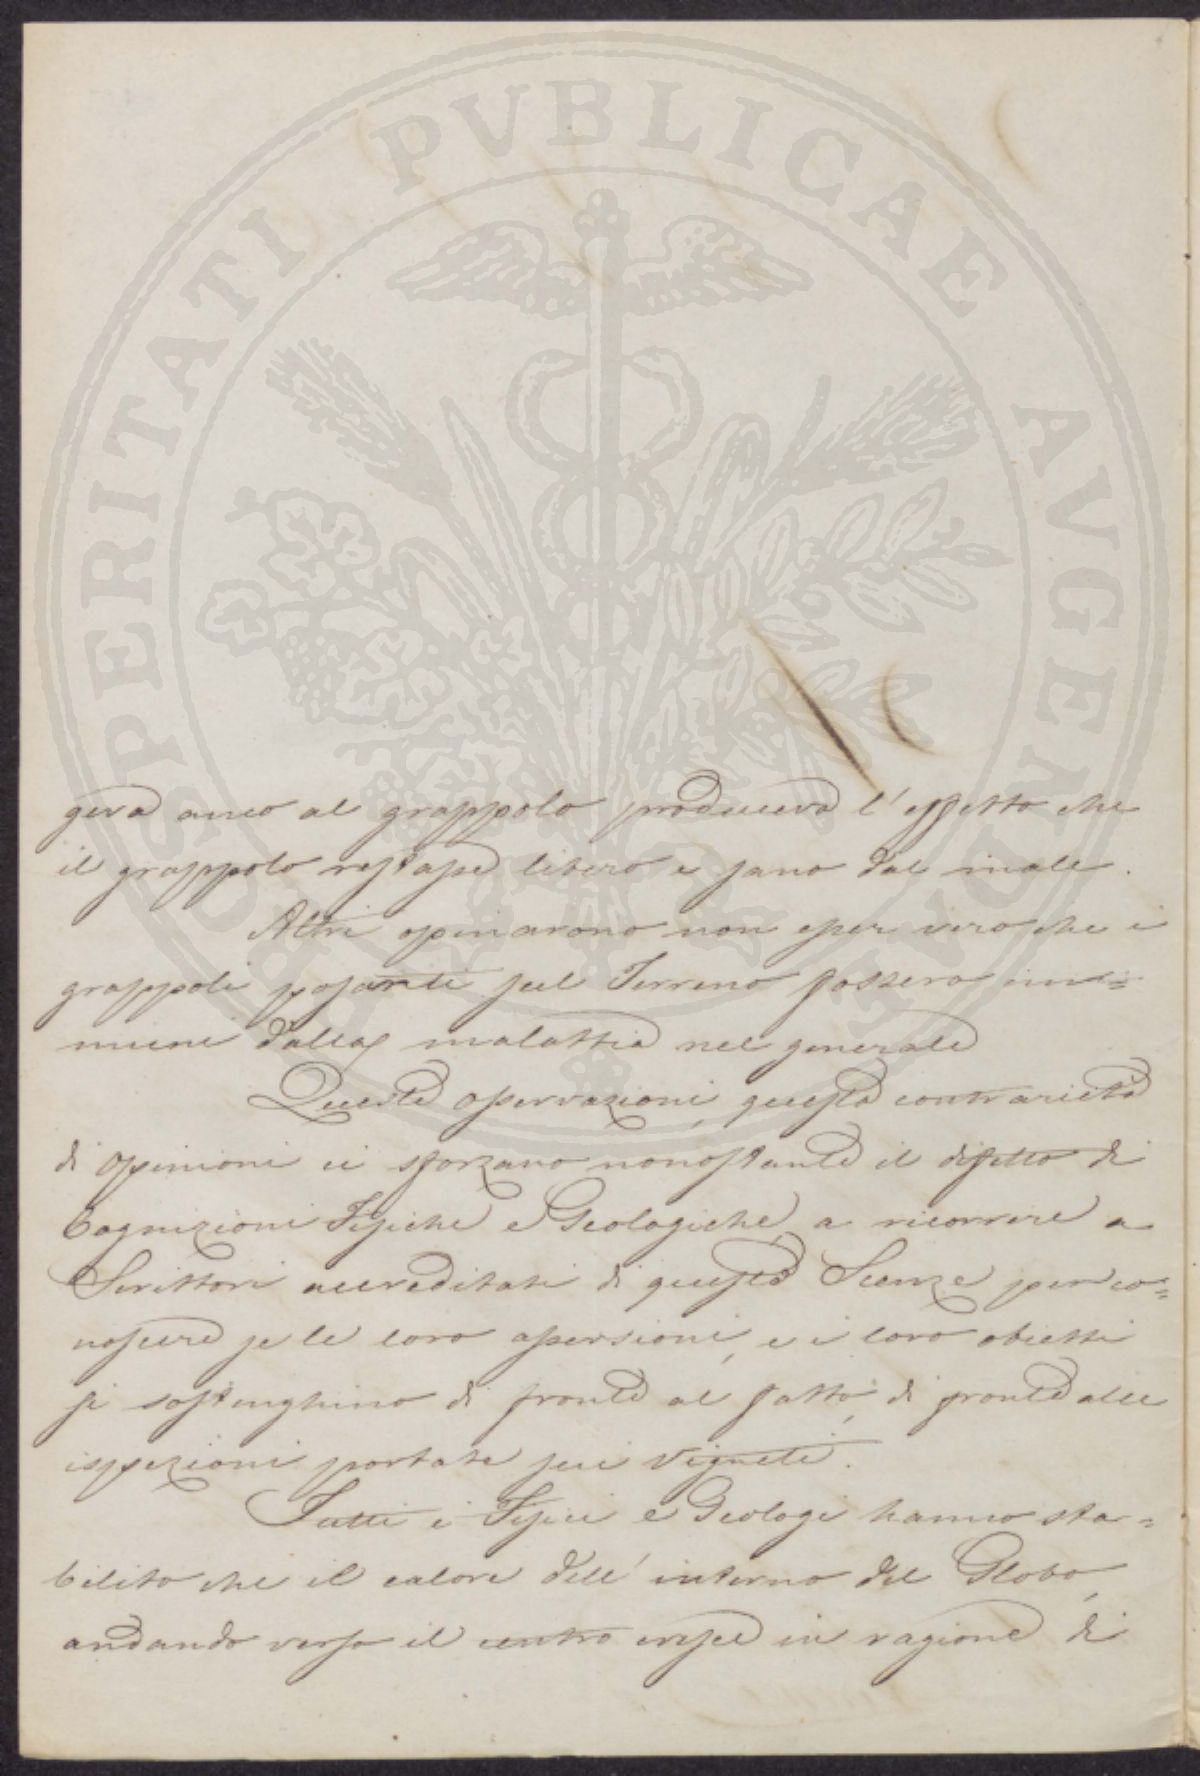 PROSPERITATI PVBLICAE AVGENDAE
geva anco al grappolo produceva l'effetto che
il grappolo restasse libero e sano dal male.
Altri opinarono non esser vero che i
grappoli posanti sul Terreno fossero im=
muni dalla malattia nel generale
Queste osservazioni, questa contrarietà
di opinioni ci sforzano nonostante il difetto di
Cognizioni Fisiche e Geologiche, a ricorrere a
Scrittori accreditati di questa Scenze per co=
noscere se le loro assersioni, e i loro obietti
si sostenghino di fronte al fatto, di fronte alle
ispezioni portate sui Vigneti.
Tutti i Fisici e Geologi hanno sta=
bilito che il calore dell'interno del Globo,
andando verso il centro cresce in ragione di